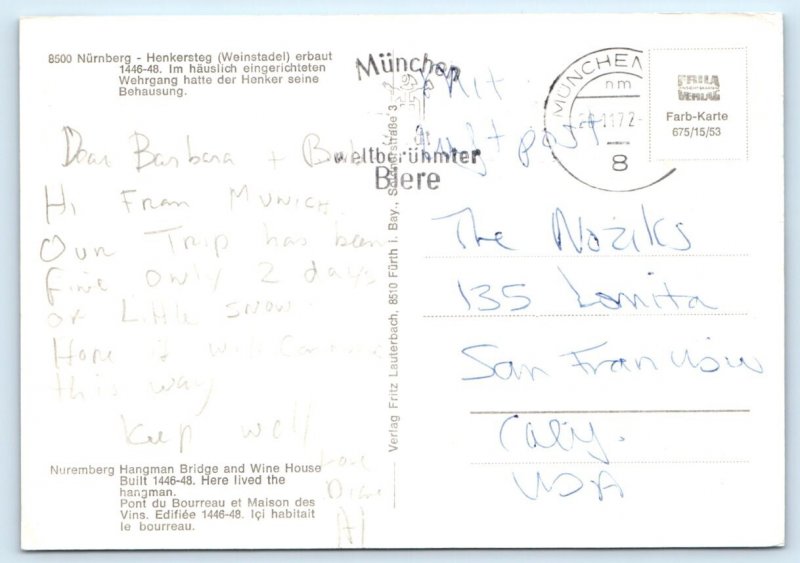 8500 Nürnberg - Henkersteg (Weinstadel) erbaut
1446-48. Im häuslich eingerichteten
Wehrgang hatte der Henker seine
Behausung.
Dear Barbara + Bob
Hi From Munich
Our Trip has been
Fine only 2 days
of Little snow.
Hope it will continue
this way
Keep well
Love
Diane
Al
Nuremberg Hangman Bridge and Wine House
Built 1446-48. Here lived the
hangman.
Pont du Bourreau et Maison des
Vins. Edifiée 1446-48. Içi habitait
le bourreau.
Verlag Fritz Lauterbach, 8510 Fürth i. Bay.,
München
weltberühmter
Biere
MÜNCHEN
8
Mit
Luftpost
VERLAG
Farb-Karte
675/15/53
The Noziks
135 Lomita
San Francisco
Calif.
USA